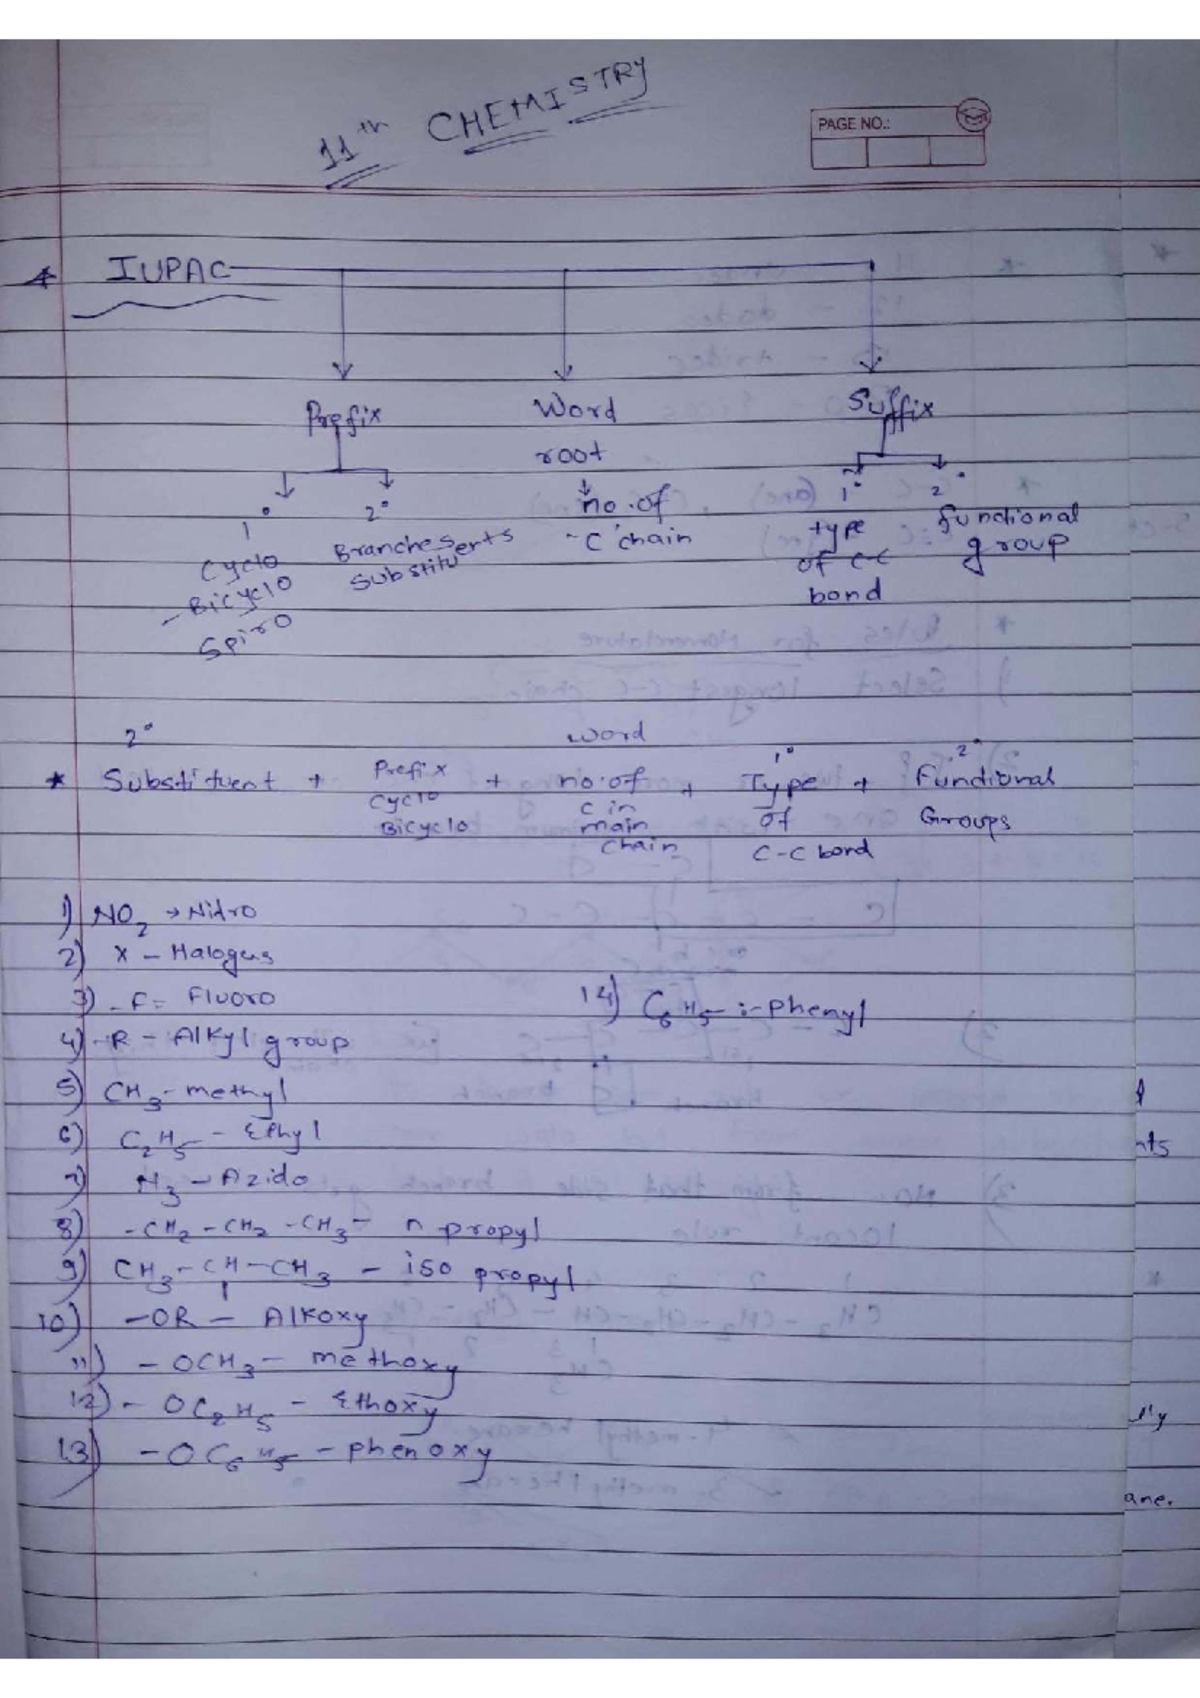 11th CHEMISTRY
PAGE NO.:
* IUPAC
Prefix Word Suffix
root
1° 2° no. of 1° 2°
Cyclo Branches C chain type functional
Bicyclo Substituents of C-C group
Spiro bond
2° word 1° 2°
* Substituent + Prefix + no. of + Type + Functional
Cyclo C in of Groups
Bicyclo main
chain C-C bond
1) NO2 → Nitro
2) X - Halogens
3) - F = Fluoro
14) C6H5- :- Phenyl
4) -R - Alkyl group
5) CH3 - methyl
6) C2H5 - Ethyl
7) N3 - Azido
8) -CH2 - CH2 - CH3 - n propyl
9) CH3 - CH - CH3 - iso propyl
10) -OR - Alkoxy
11) - OCH3 - methoxy
12) - OC2H5 - Ethoxy
13) - OC6H5 - phenoxy
nts
ane.